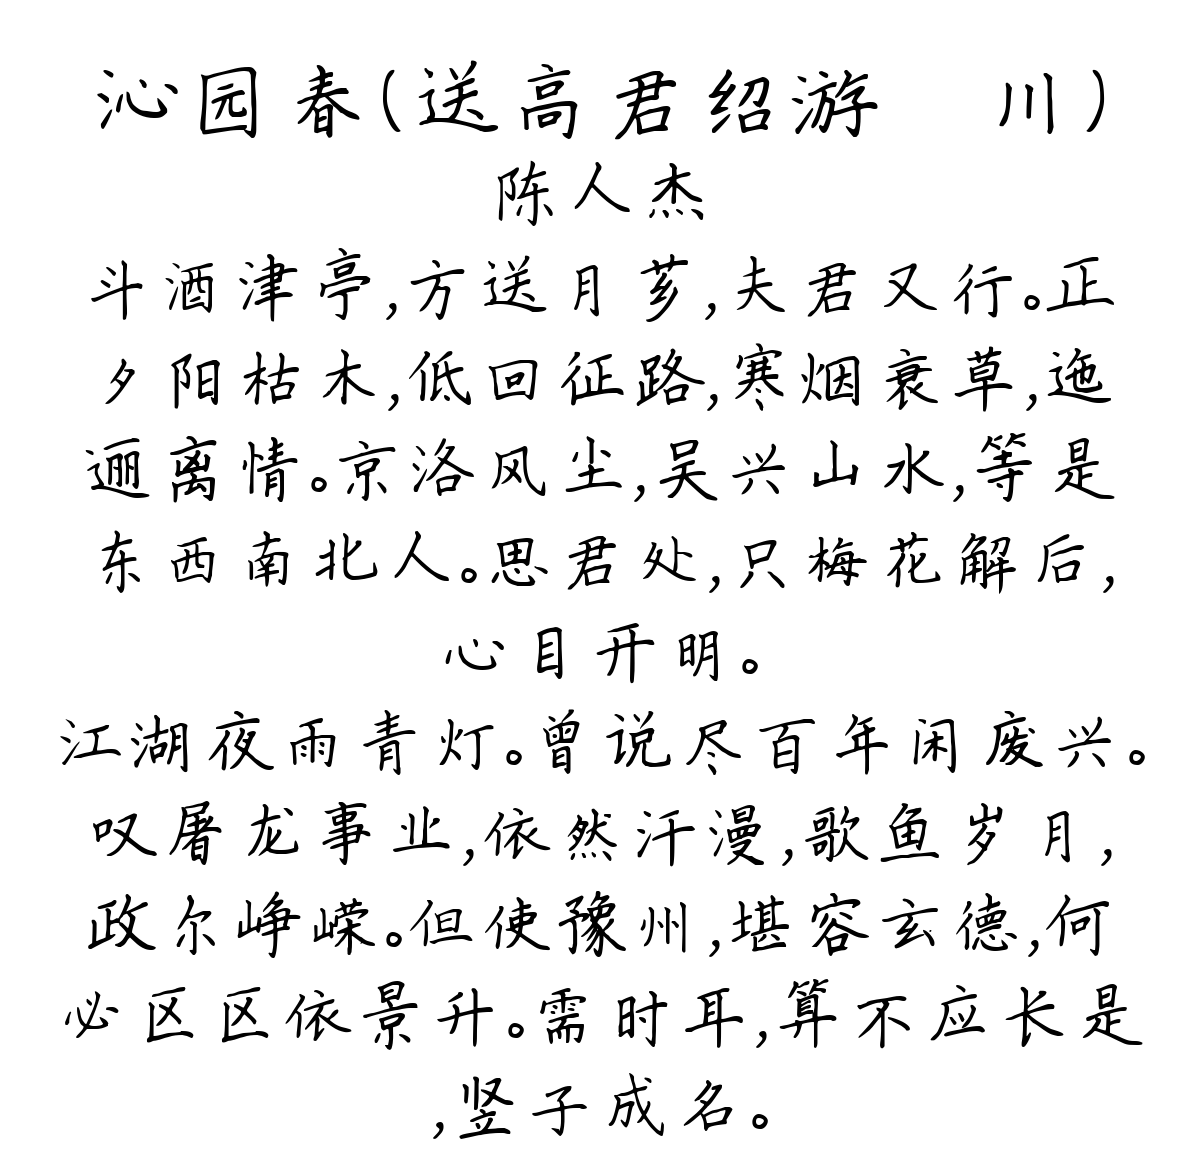 沁园春(送高君绍游 川)
陈人杰
斗酒津亭,方送月芗,夫君又行。正
夕阳枯木,低回征路,寒烟衰草,迤
逦离情。京洛风尘,吴兴山水,等是
东西南北人。思君处,只梅花解后,
心目开明。
江湖夜雨青灯。曾说尽百年闲废兴。
叹屠龙事业,依然汗漫,歌鱼岁月,
政尔峥嵘。但使豫州,堪容玄德,何
必区区依景升。需时耳,算不应长是
,竖子成名。